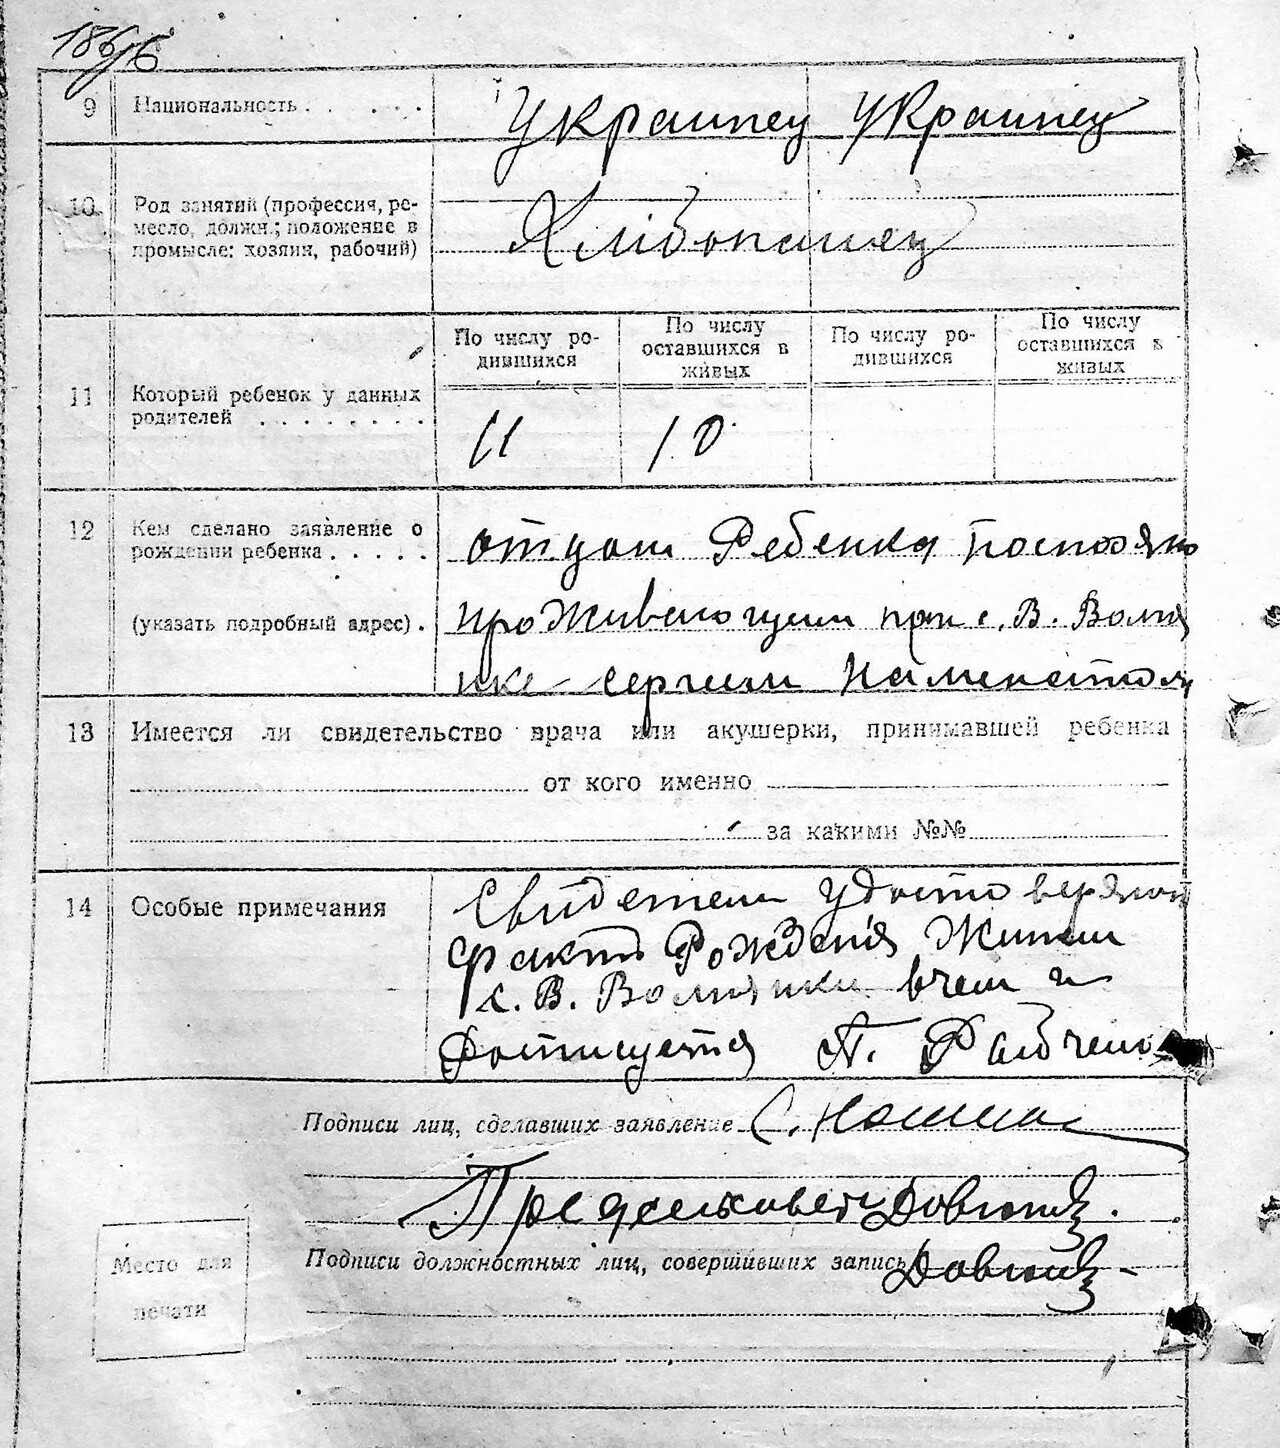 186/б
9 Национальность . . . . . . Украинец Украинец
10 Род занятий (профессия, ре-
месло, должн.; положение в
промысле: хозяин, рабочий)
Хлібопашец
По числу ро-
дившихся
По числу
оставшихся в
живых
По числу ро-
дившихся
По числу
оставшихся в
живых
11 Который ребенок у данных
родителей . . . . . . . .
11 10
12 Кем сделано заявление о
рождении ребенка . . . . .
(указать подробный адрес) .
отцом Ребенка
проживающим при с. В.
Сергием
13 Имеется ли свидетельство врача или акушерки, принимавшей ребенка
от кого именно
за какими №№
14 Особые примечания
Свидетели удостоверяют
факт Рождения Жители
с. В. в чем и
А.
Подписи лиц, сделавших заявление С.
Предсельсовета
Подписи должностных лиц, совершивших запись
Место для
печати